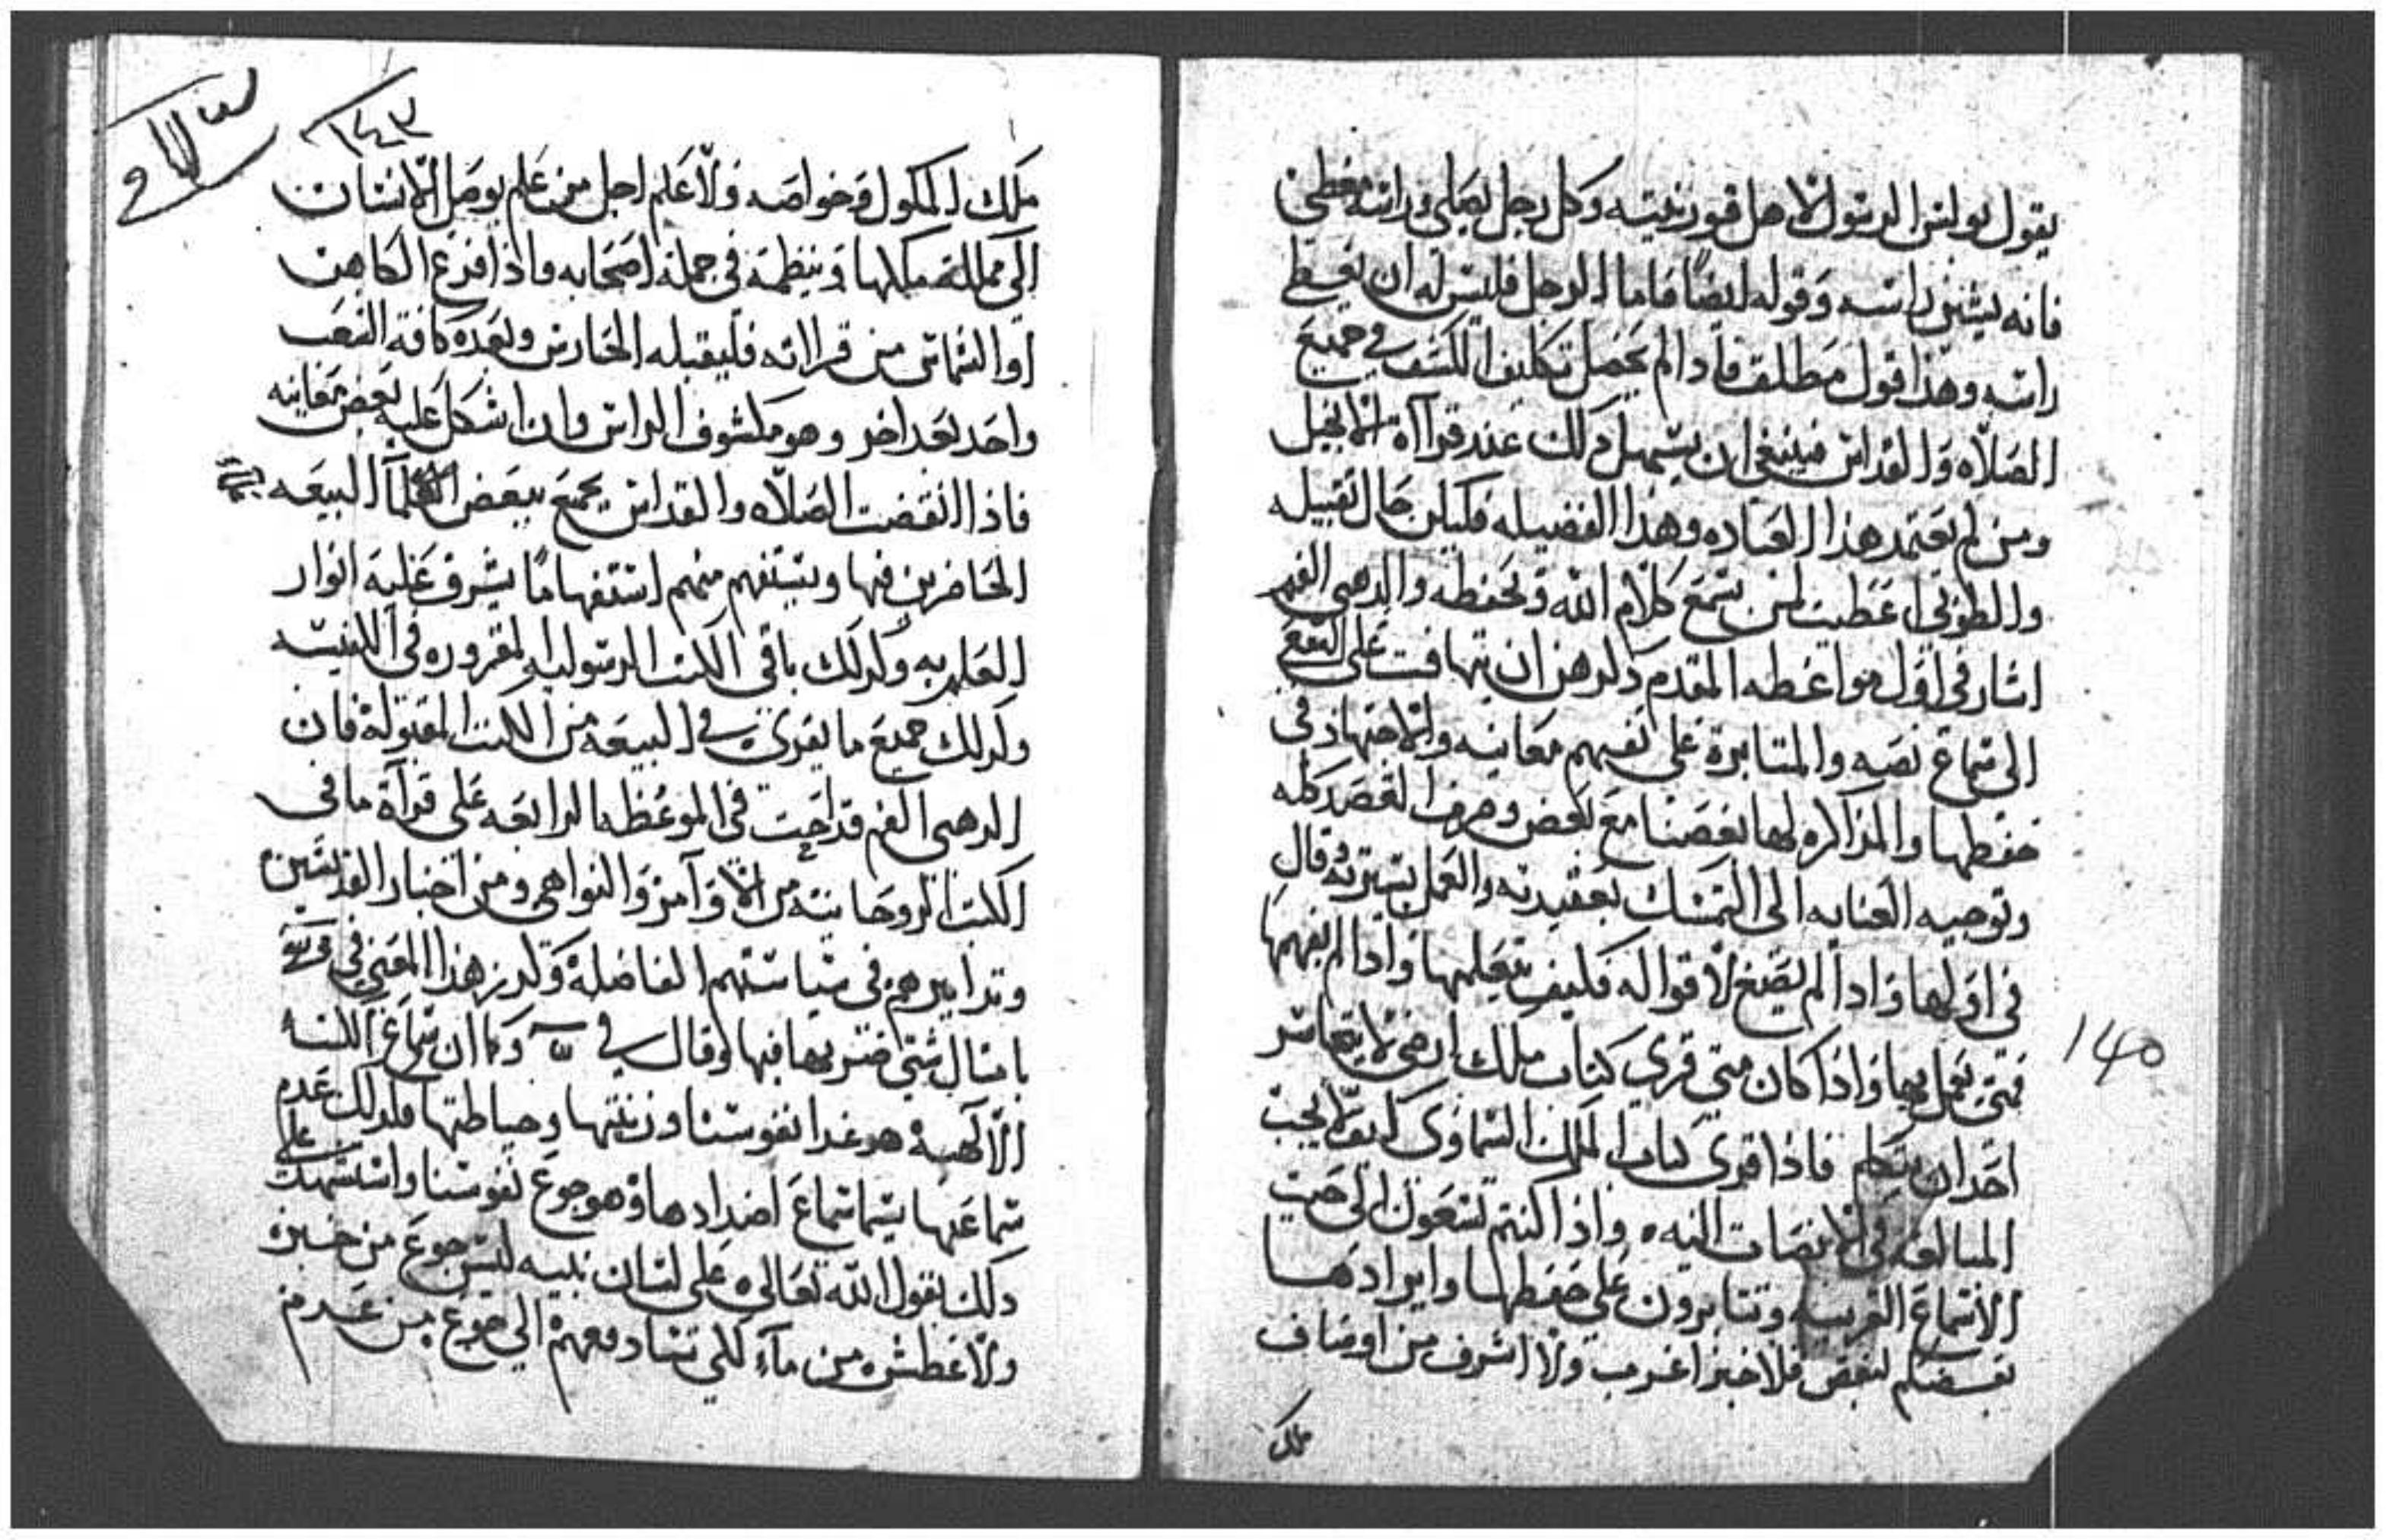 يقول بولس الرسول لاهل قورنتيه وكل رجل يصلي وراسه مغطى
فانه يشين راسه وقوله ايضًا فاما الرجل فليس له ان يغطى
راسه وهذا قول مطلق فاذا لم يحصل تكليف الكشف في جميع
الصلاه والقداس فينبغي ان يستعمل ذلك عند قراآة الانجيل
ومن لم يعتمد هذا العباده وهذا الفضيله فليكن حال تقبيله
والطوبى اعطيت لمن يسمع كلام الله ويحفظه والدهبي الفم
اشار في اول مواعظه المقدم دكرهن ان يتهافت على
الى سماع نصه والمتابرة على تفهم معانيه والاجتهاد في
حفظها والمذاكره بها بعضنا مع بعض وصرف القصد كله
وتوجيه العنايه الى التمسك بعقيدته والعمل بسيرته وقال
في اولها واذا لم يصغ لاقواله فكيف يتعلمها واذا لم يفهمها
فمتى يعمل بها واذا كان متى قري كتاب ملك ارضي لا يتجاسر
احد ان يتكلم فاذا قرى كتاب الملك السماوى كيف لا يجب
المبالغه في الانصات اليه ٥ واذا كنتم تسعون الى حيت
الاستماع الغريبه وتتابرون على حفظها وايرادها
بعضكم لبعض فلا خبر اغرب ولا اشرف من اوصاف
ملك
١٤٥
١٤٣
ملك الملكوت وخواصه ولا علم اجل من علم يوصل الانسان
الى مملكة ملكها وينظمه في جملة اصحابه واذا افرغ الكاهن
او الشماس من قراته فليقبله الحارس وبعده كافة الشعب
واحد بعد اخر وهو مكشوف الراس وان اشكل عليه بعض معانيه
فاذا انقضت الصلاه والقداس يجمع ببعض علما البيعه
الحاضرين فيها ويستفهم منهم استفهامًا يشرق عليه انوار
العلم به وكدلك باقي الكتب الرسوليه المقروه في الكنيسه
وكدلك جميع ما يقرى في البيعه من الكتب المقبولة فان
الدهبي الفم قد احت في الموعظه الرابعه على قراة ما في
الكتب الروحانيه من الاوآمر والنواهي ومن اخبار القديسين
وتدابيرهم في سياستهم الفاضلة وكرر هذا المعنى في
بامتال شتى ضربها فيها وقال في وكما ان سماع الكتب
الالهية هو غدا نفوسنا وزينتها وحياطتها فكدلك عدم
سماعها سيما سماع اضدادها وهو جوع نفوسنا واستشهد على
دلك بقول الله تعالى على لسان نبيه ليس جوع من خبز
ولا عطش من مآء لكني سادفعهم الى جوع من عدم